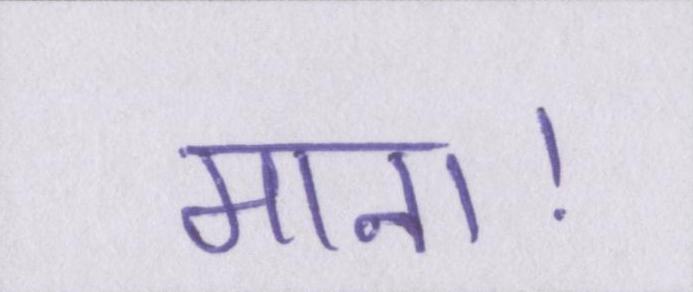 माना!